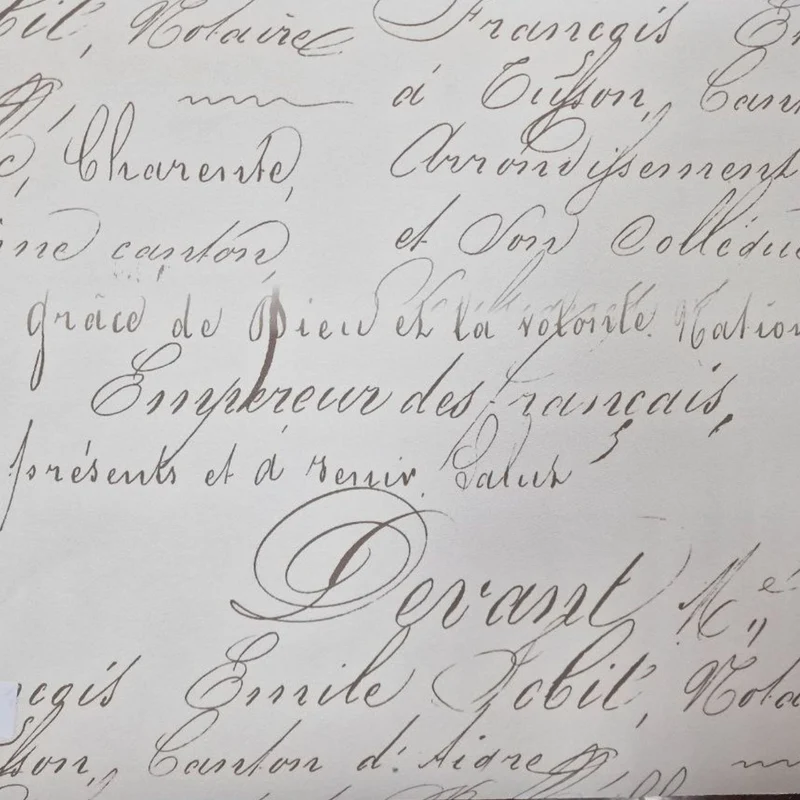 bit, Notaire François Em
à Tusson, Cant
, Charente, Arrondissement
canton, et Son Collègue
grâce de Dieu et la volonté Nation
Empereur des français,
présents et à venir, Salut
Devant Me
nçois Emile Bobit, Nota
sson, Canton d'Aigre